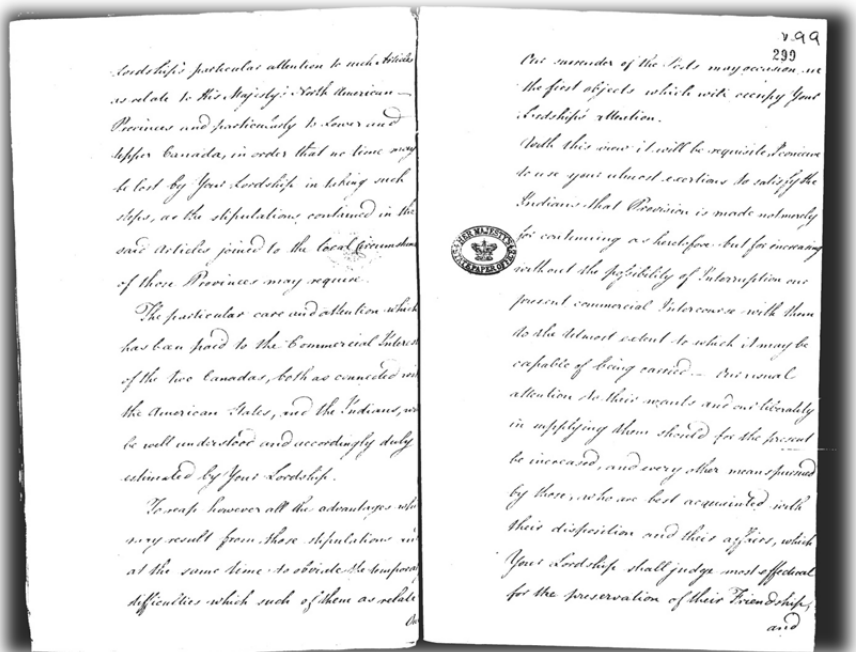 Lordship's particular attention to such Articles
as relate to His Majesty's North American
Provinces and particularly to Lower and
Upper Canada, in order that no time may
be lost by Your Lordship in taking such
steps, as the stipulations contained in the
said Articles joined to the local Circumstan
of those Provinces may require.
The particular care and attention which
has been paid to the Commercial Interes
of the two Canadas, both as connected wit
the American States, and the Indians, wi
be well understood and accordingly duly
estimated by Your Lordship.
To reap however all the advantages whi
may result from those stipulations
at the same time to obviate the tempora
difficulties which such of them as relate
299
Our surrender of the Posts may occasion are
the first objects which will occupy Your
Lordship's attention.
With this view it will be requisite, I conceive
to use your utmost exertions to satisfy the
Indians that Provision is made not merely
for continuing as heretofore but for increasing
without the possibility of Interruption our
present commercial Intercourse with them
to the utmost extent to which it may be
capable of being carried — Our usual
attention to their wants and our liberality
in supplying them should for the present
be increased, and every other means pursued
by those, who are best acquainted with
their disposition and their affairs, which
Your Lordship shall judge most effectual
for the preservation of their Friendship,
and
HER MAJESTY'S STATE PAPER OFFICE